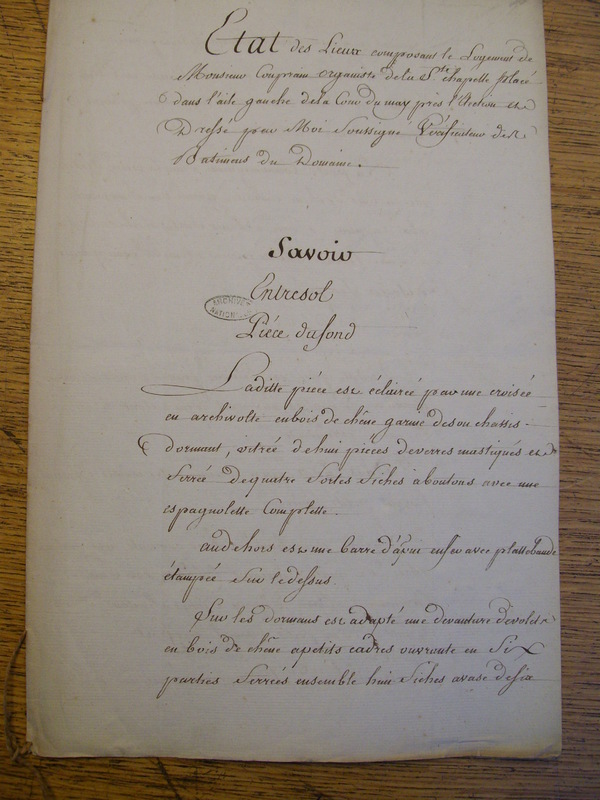 Etat des Lieux composant le Logement de
Monsieur Couprain organiste dela Ste. chapelle placé
dans l'aile gauche dela Cour du may près l'
Dressé par Moi Soussigné Vérificateur des
Batimens du Domaine.
Savoir
Entresol
ARCHIVES
NATIONALES
Piéce du fond
Laditte piéce est éclairée par une croisée
en archivolte en bois de chêne garnie de son chassis
dormant, vitrée de huit pieces de verres mastiqués et
ferrée de quatre fortes fiches a boutons avec une
espagnolette Complette.
au dehors est une barre d'apui en fer avec plattebande
étampée sur le dessus
Sur les dormans est adapté une devanture de volets
en bois de chêne a petits cadres ouvrante en Six
parties ferrées ensemble huit fiches a vase de six